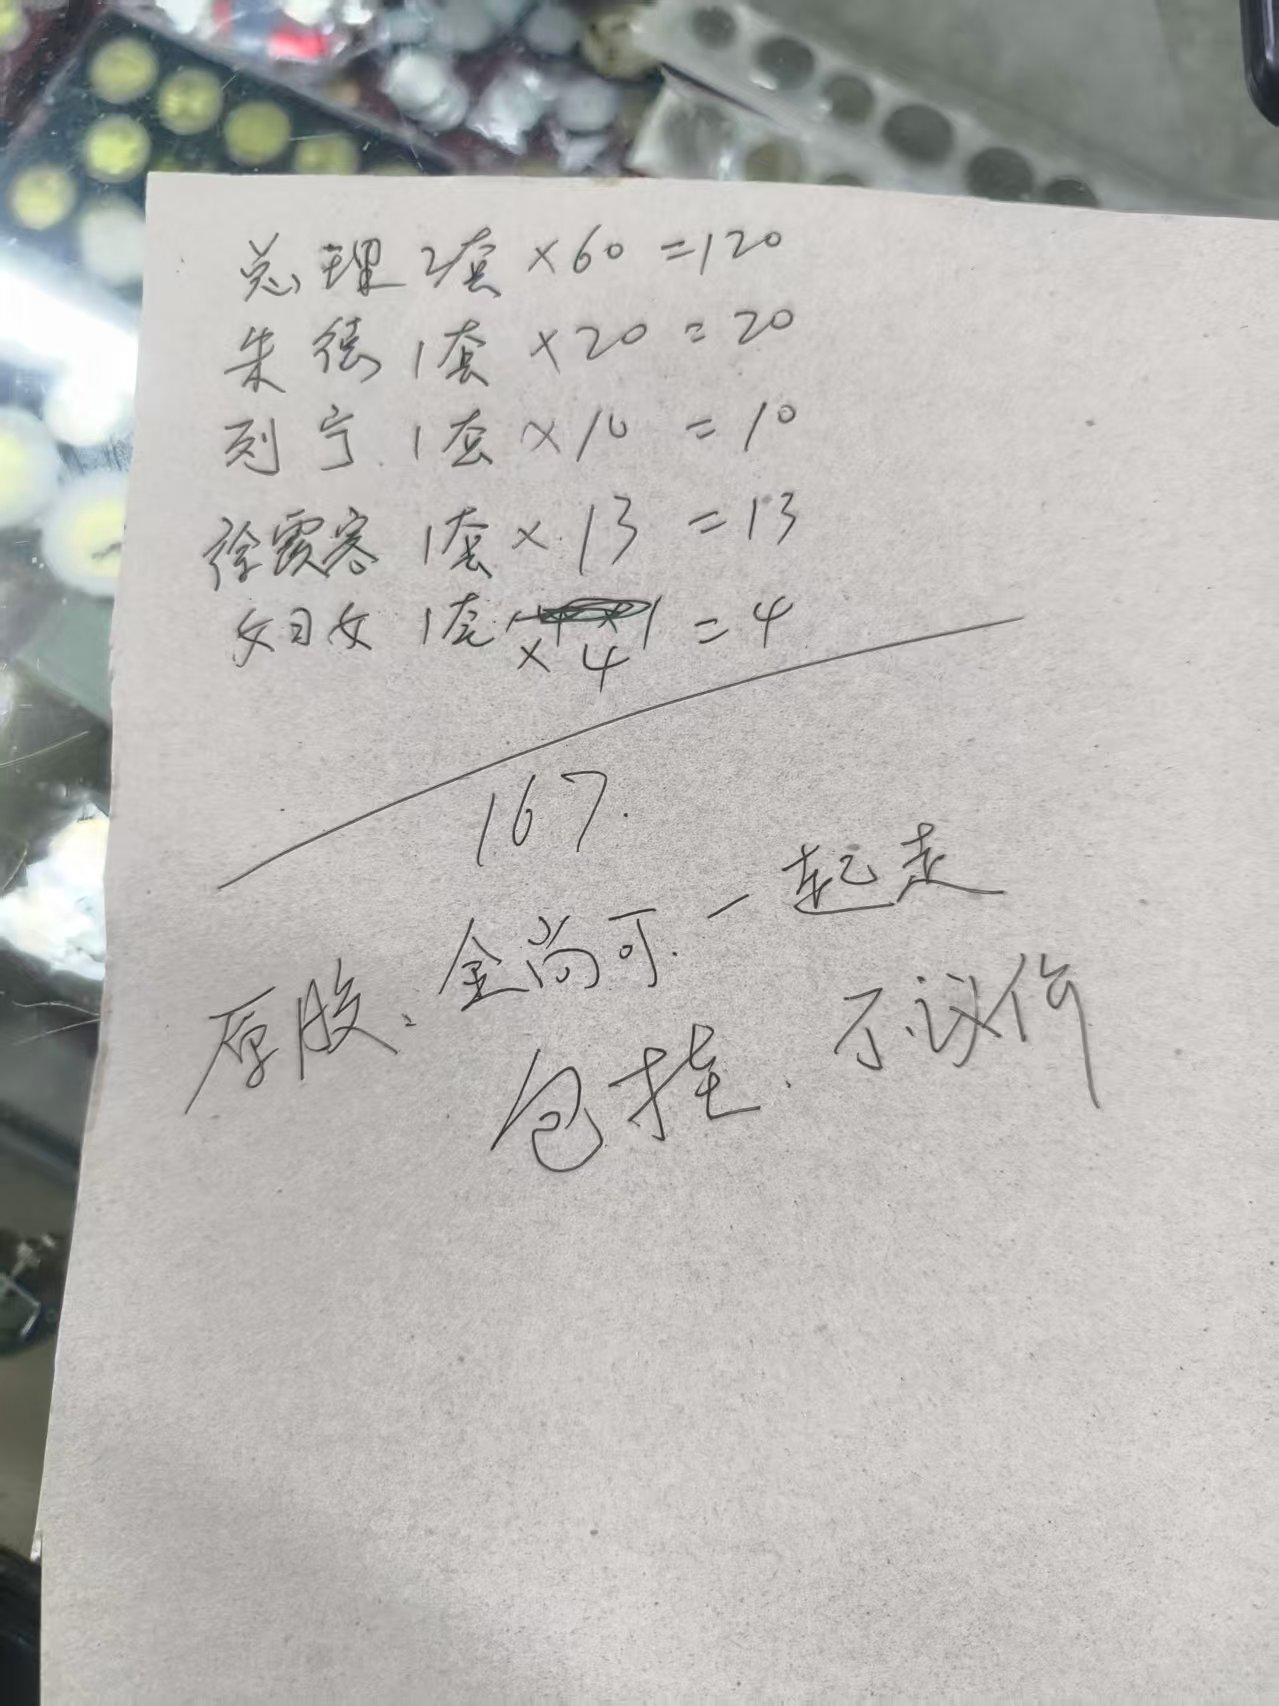 总理 2套 ×60 =120
朱德 1套 ×20 =20
列宁 1套 ×10 =10
徐霞客 1套 ×13 =13
女日女 1套 ×4 =4
167.
原胶、全尚可.一起走
包挂.不议价